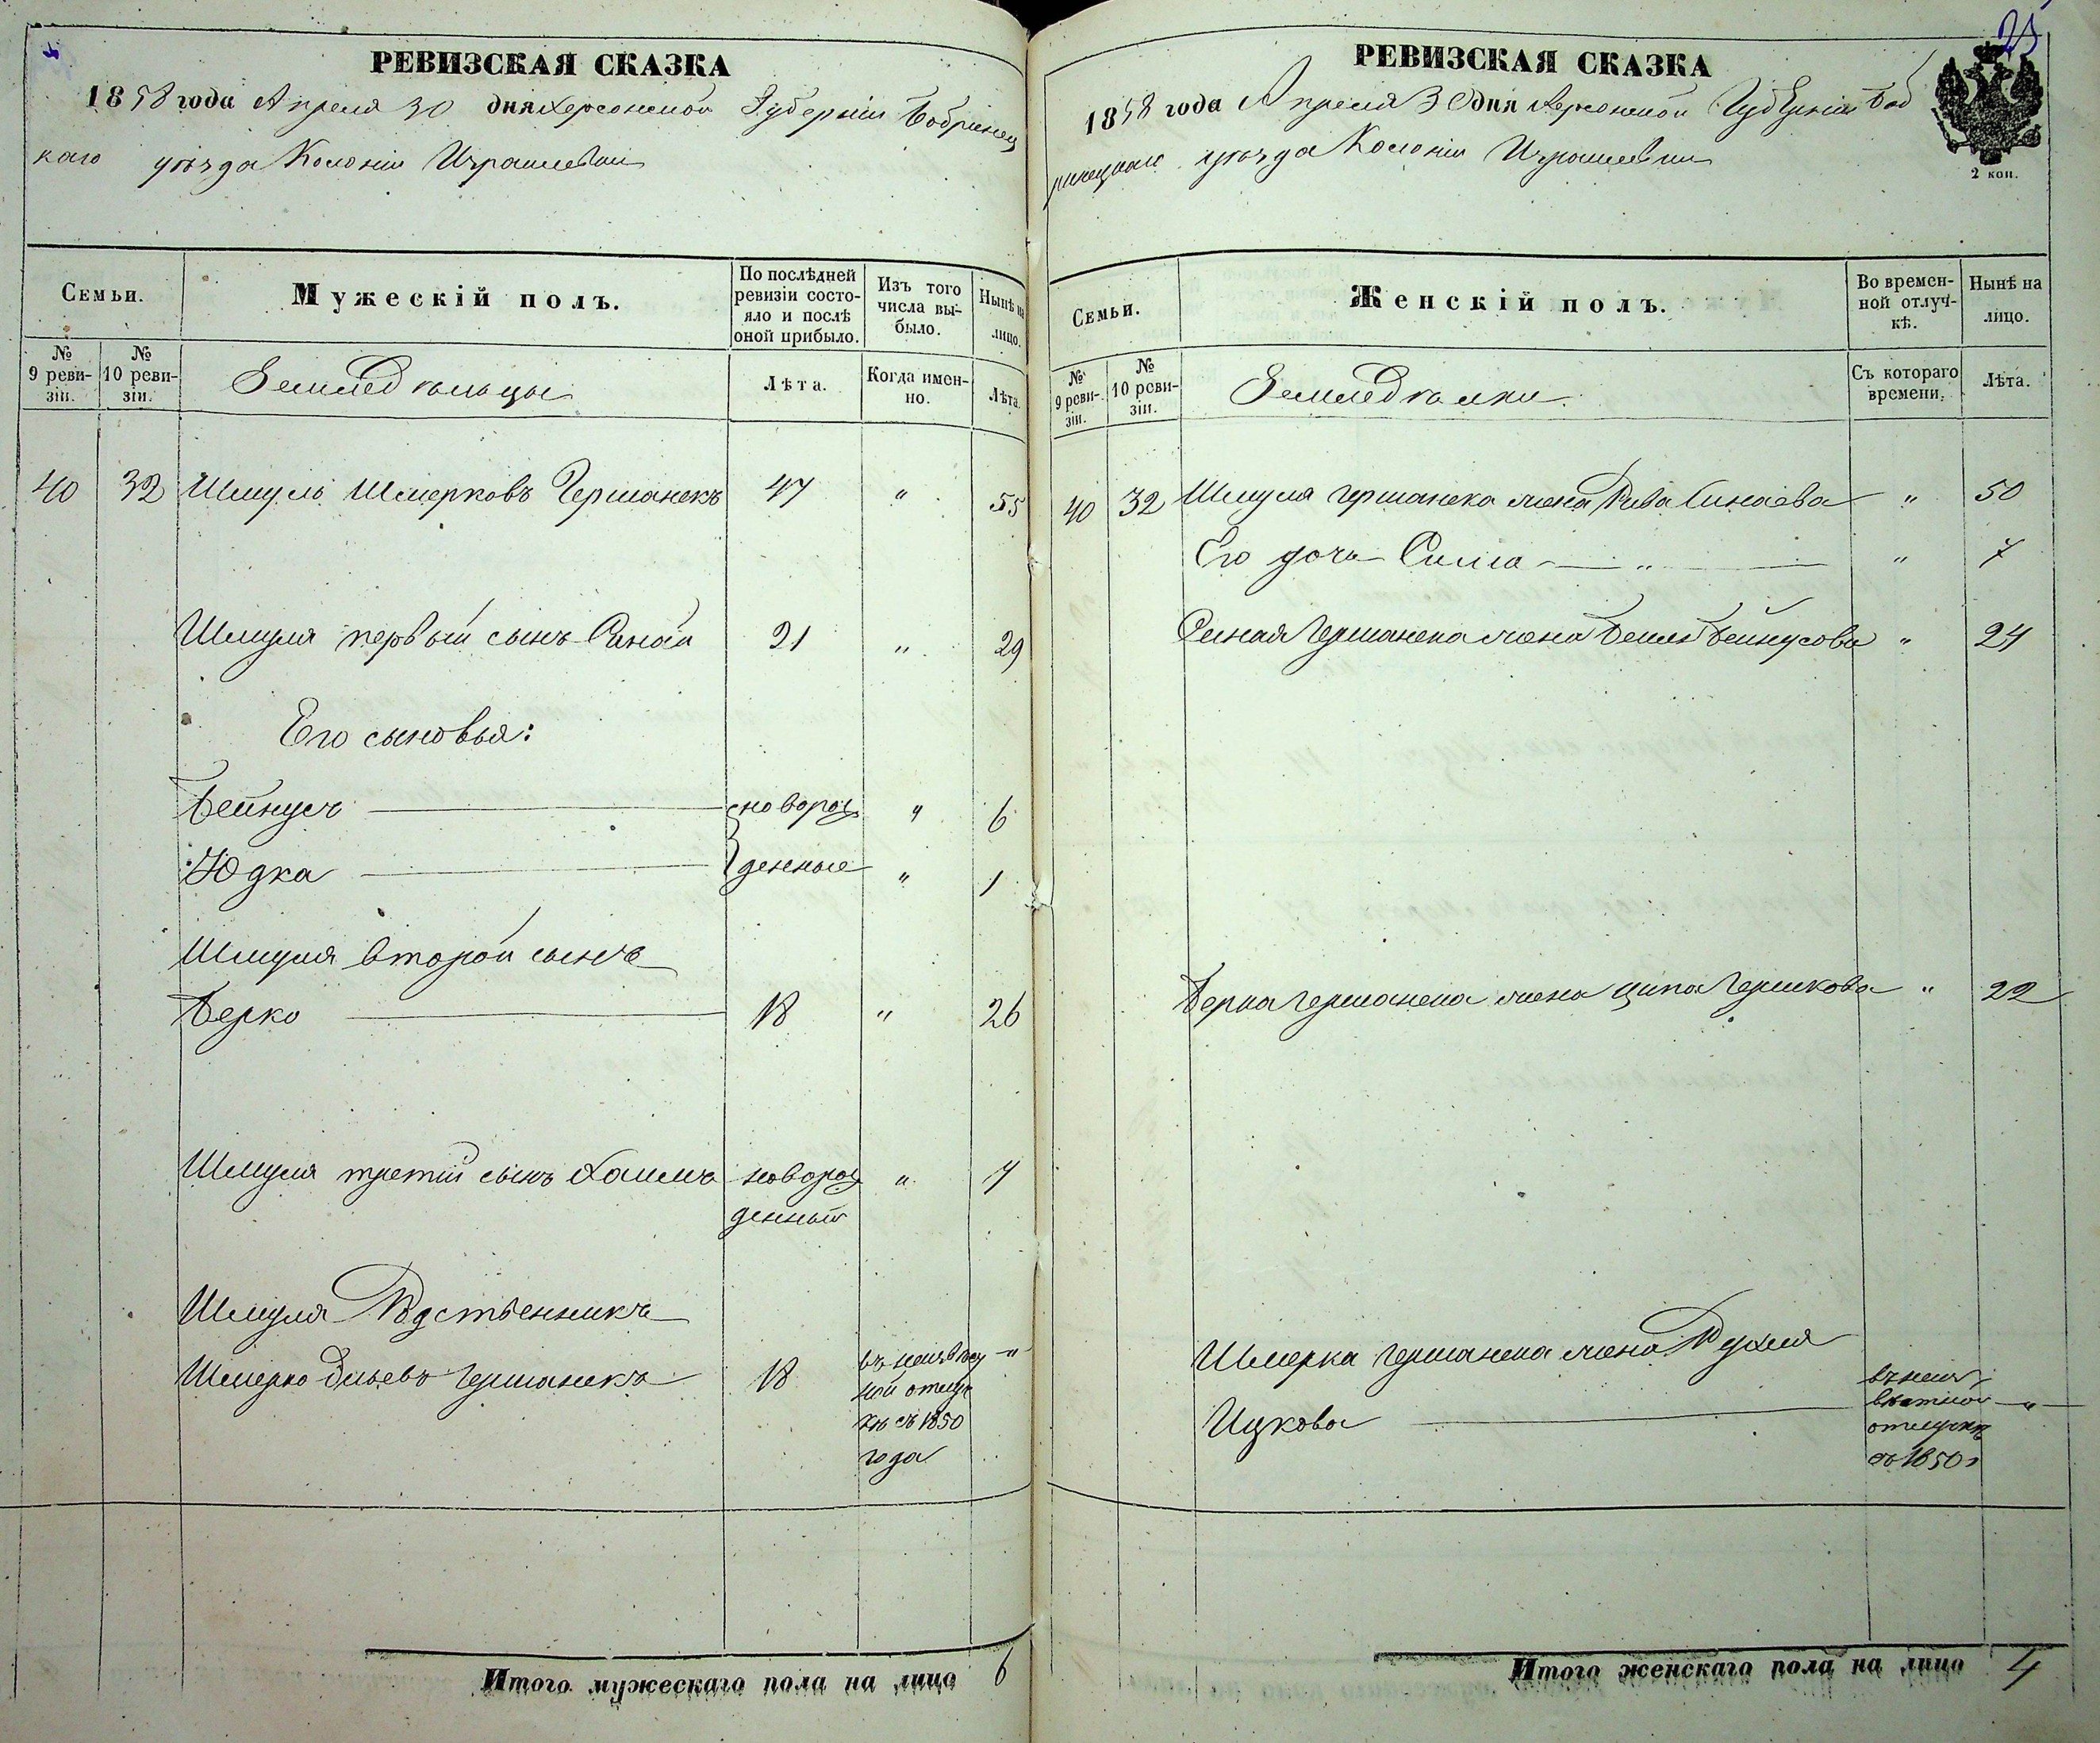 РЕВИЗСКАЯ СКАЗКА
1858 года Апреля 30 дня Херсонской Губернiи Бобринец
каго уѣзда Колонiи Израилевки
Семьи.
Мужескiй полъ.
По послѣдней ревизiи состо-
яло и послѣ оной прибыло.
Изъ того числа вы-
было.
Нынѣ на лицо.
№ 9 реви-
зiи.
№ 10 реви-
зiи.
Земледѣльцы
Лѣта.
Когда имен-
но.
Лѣта.
40 32 Шмуль Шмерковъ Германекъ 47 " 55
Шмуля первый сынъ Синай 21 " 29
Его сыновья:
Бейнусъ новорож " 6
Юдка денные " 1
Шмуля второй сынъ
Берко 18 " 26
Шмуля третiй сынъ Хаимъ новорож " 7
денный
Шмуля Родственникъ
Шмерко Германекъ 18 въ неизвѣст "
ной отлуч
кѣ съ 1850
года
Итого мужескаго пола на лицо 6
25
РЕВИЗСКАЯ СКАЗКА
1858 года Апреля 30 дня Херсонской Губернiи Боб
ринецкаго уѣзда Колонiи Израилевки
2 коп.
Семьи.
Женскiй полъ.
Во времен-
ной отлуч-
кѣ.
Нынѣ на лицо.
№ 9 реви-
зiи.
№ 10 реви-
зiи.
Земледѣлки
Съ котораго времени.
Лѣта.
40 32 Шмуля Германека жена Рива Синаева " 50
Его дочь Симa " " 7
Синая Германека жена Бейля Бейнусова " 24
Берка Германека жена Ципа Гершкова " 22
Шмерка Германека жена Рухля
Ицкова въ неиз
вѣстной "
отлучкѣ
съ 1850 г
Итого женскаго пола на лицо 4